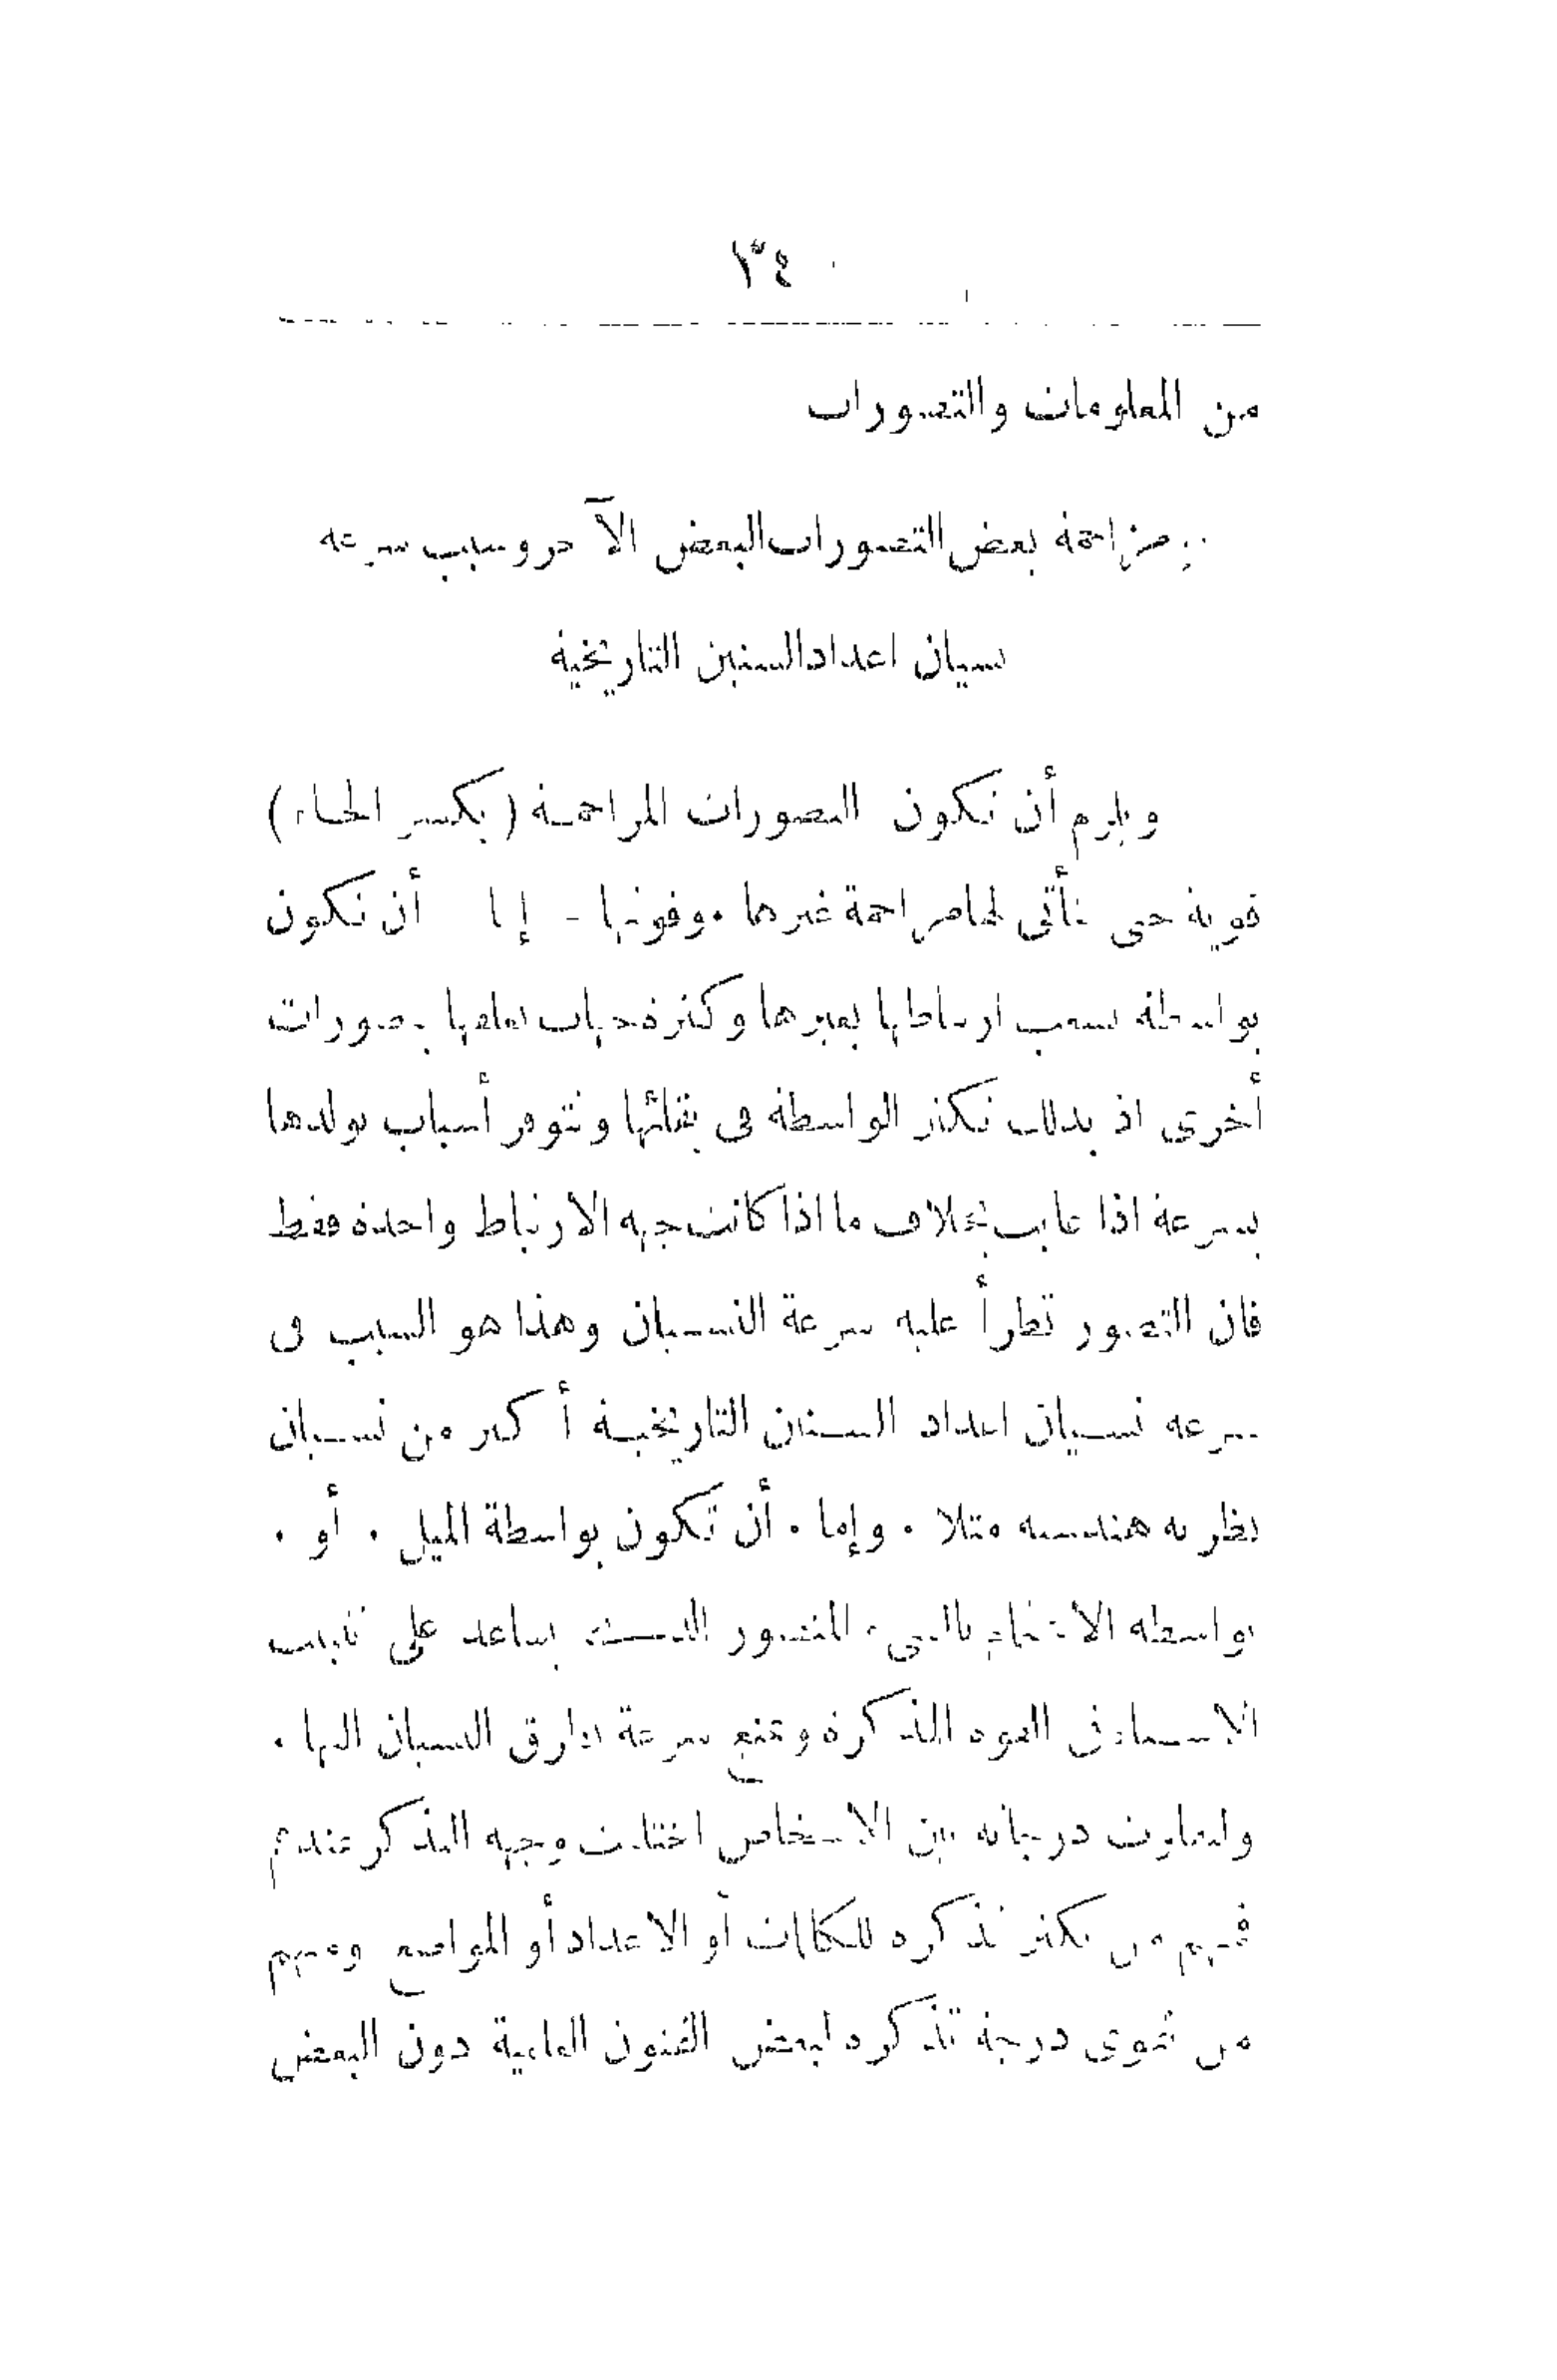 ٣٤
من المعلومات والتصورات
مزاحمة بعض التصورات البعض الآخر وسبب سرعة
نسيان اعداد السنين التاريخية
ويلزم أن تكون التصورات المزاحمة (بكسر الحاء)
قوية حتى يتأتى لها مزاحمة غيرها . وقوتها - إما أن تكون
بواسطة سبب ارتباطها بغيرها وكثرة جهات تعلقها بتصورات
أخرى اذ بذلك تكثر الواسطة في بقائها وتتوفر أسباب تولدها
بسرعة اذا غابت بخلاف ما اذا كانت جهة الارتباط واحدة فقط
فان التصور تطرأ عليه سرعة النسيان وهذا هو السبب في
سرعة نسيان اعداد السنين التاريخية أكثر من نسيان
نظرية هندسية مثلا . وإما . أن تكون بواسطة الميل . أو .
بواسطة الاعتناء بالشيء المتصور اللذين يساعد على تثبيت
الاشياء في القوة الذاكرة ويمنع سرعة تطرق النسيان اليها .
ولتفاوت درجاته بين الاشخاص اختلفت وجهة التذكر عندهم
فمنهم من يكثر تذكره للكلمات أو الاعداد أو المواضع ومنهم
من تقوى درجة تذكره لبعض الفنون العلمية دون البعض